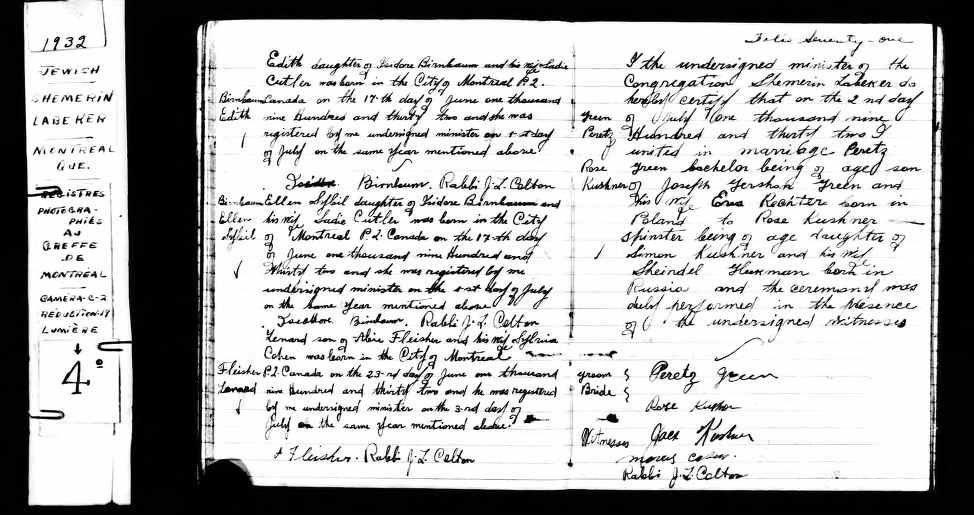 1932
JEWISH
SHEMERIN
LABEKER
MONTREAL
QUE.
REGISTRES
PHOTOGRA-
PHIÉS
AU
GREFFE
DE
MONTREAL
CAMERA-C-2
REDUCTION-19
LUMIÈRE
4
Edith daughter of Isidore Birnbaum and his wife Sadie
Cutler was born in the City of Montreal P.Q.
Birnbaum Canada on the 17-th day of June one thousand
Edith nine Hundred and thirty two and she was
registered by me undersigned minister on 1-st day
of July on the same year mentioned above
Isidore Birnbaum. Rabbi J. L. Colton
Birnbaum Ellen Sybil daughter of Isidore Birnbaum and
Ellen his wife Sadie Cutler was born in the City
Sybil of Montreal P.Q. Canada on the 17-th day
of June one thousand nine Hundred and
thirty two and she was registered by me
undersigned minister on the 1-st day of July
on the same year mentioned above
Isidore Birnbaum. Rabbi J. L. Colton
Lenard son of Abie Fleisher and his wife Sylvia
Cohen was born in the City of Montreal
Fleisher P.Q. Canada on the 23-rd day of June one thousand
Lenard nine Hundred and thirty two and he was registered
by me undersigned minister on the 3-rd day of
July on the same year mentioned above.
A Fleisher. Rabbi J. L. Colton
Folio Seventy-one
I the undersigned minister of the
Congregation Shemerin Labeker do
hereby certify that on the 2nd day
Green of July one thousand nine
Peretz Hundred and thirty two I
united in marriage Peretz
Rose Green bachelor being of age son
Kushner of Joseph Gershon Green and
his wife Eva Rechter born in
Poland to Rose Kushner
spinster being of age daughter of
Simon Kushner and his wife
Sheindel born in
Russia and the ceremony was
duly performed in the presence
of the undersigned witnesses
groom } Peretz Green
Bride } Rose Kushner
Witnesses Jack Kushner
Rabbi J. L. Colton